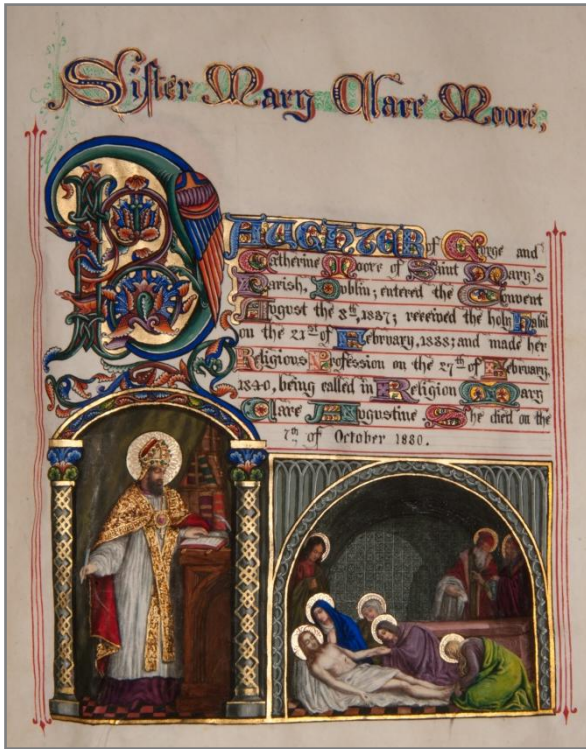 Sister Mary Clare Moore;
DAUGHTER of George and
Catherine Moore of Saint Mary's
Parish, Dublin; entered the Convent
August the 8th, 1837; received the holy Habit
on the 21st of February, 1838; and made her
Religious Profession on the 27th of February,
1840, being called in Religion Mary
Clare Augustine She died on the
7th of October 1880.